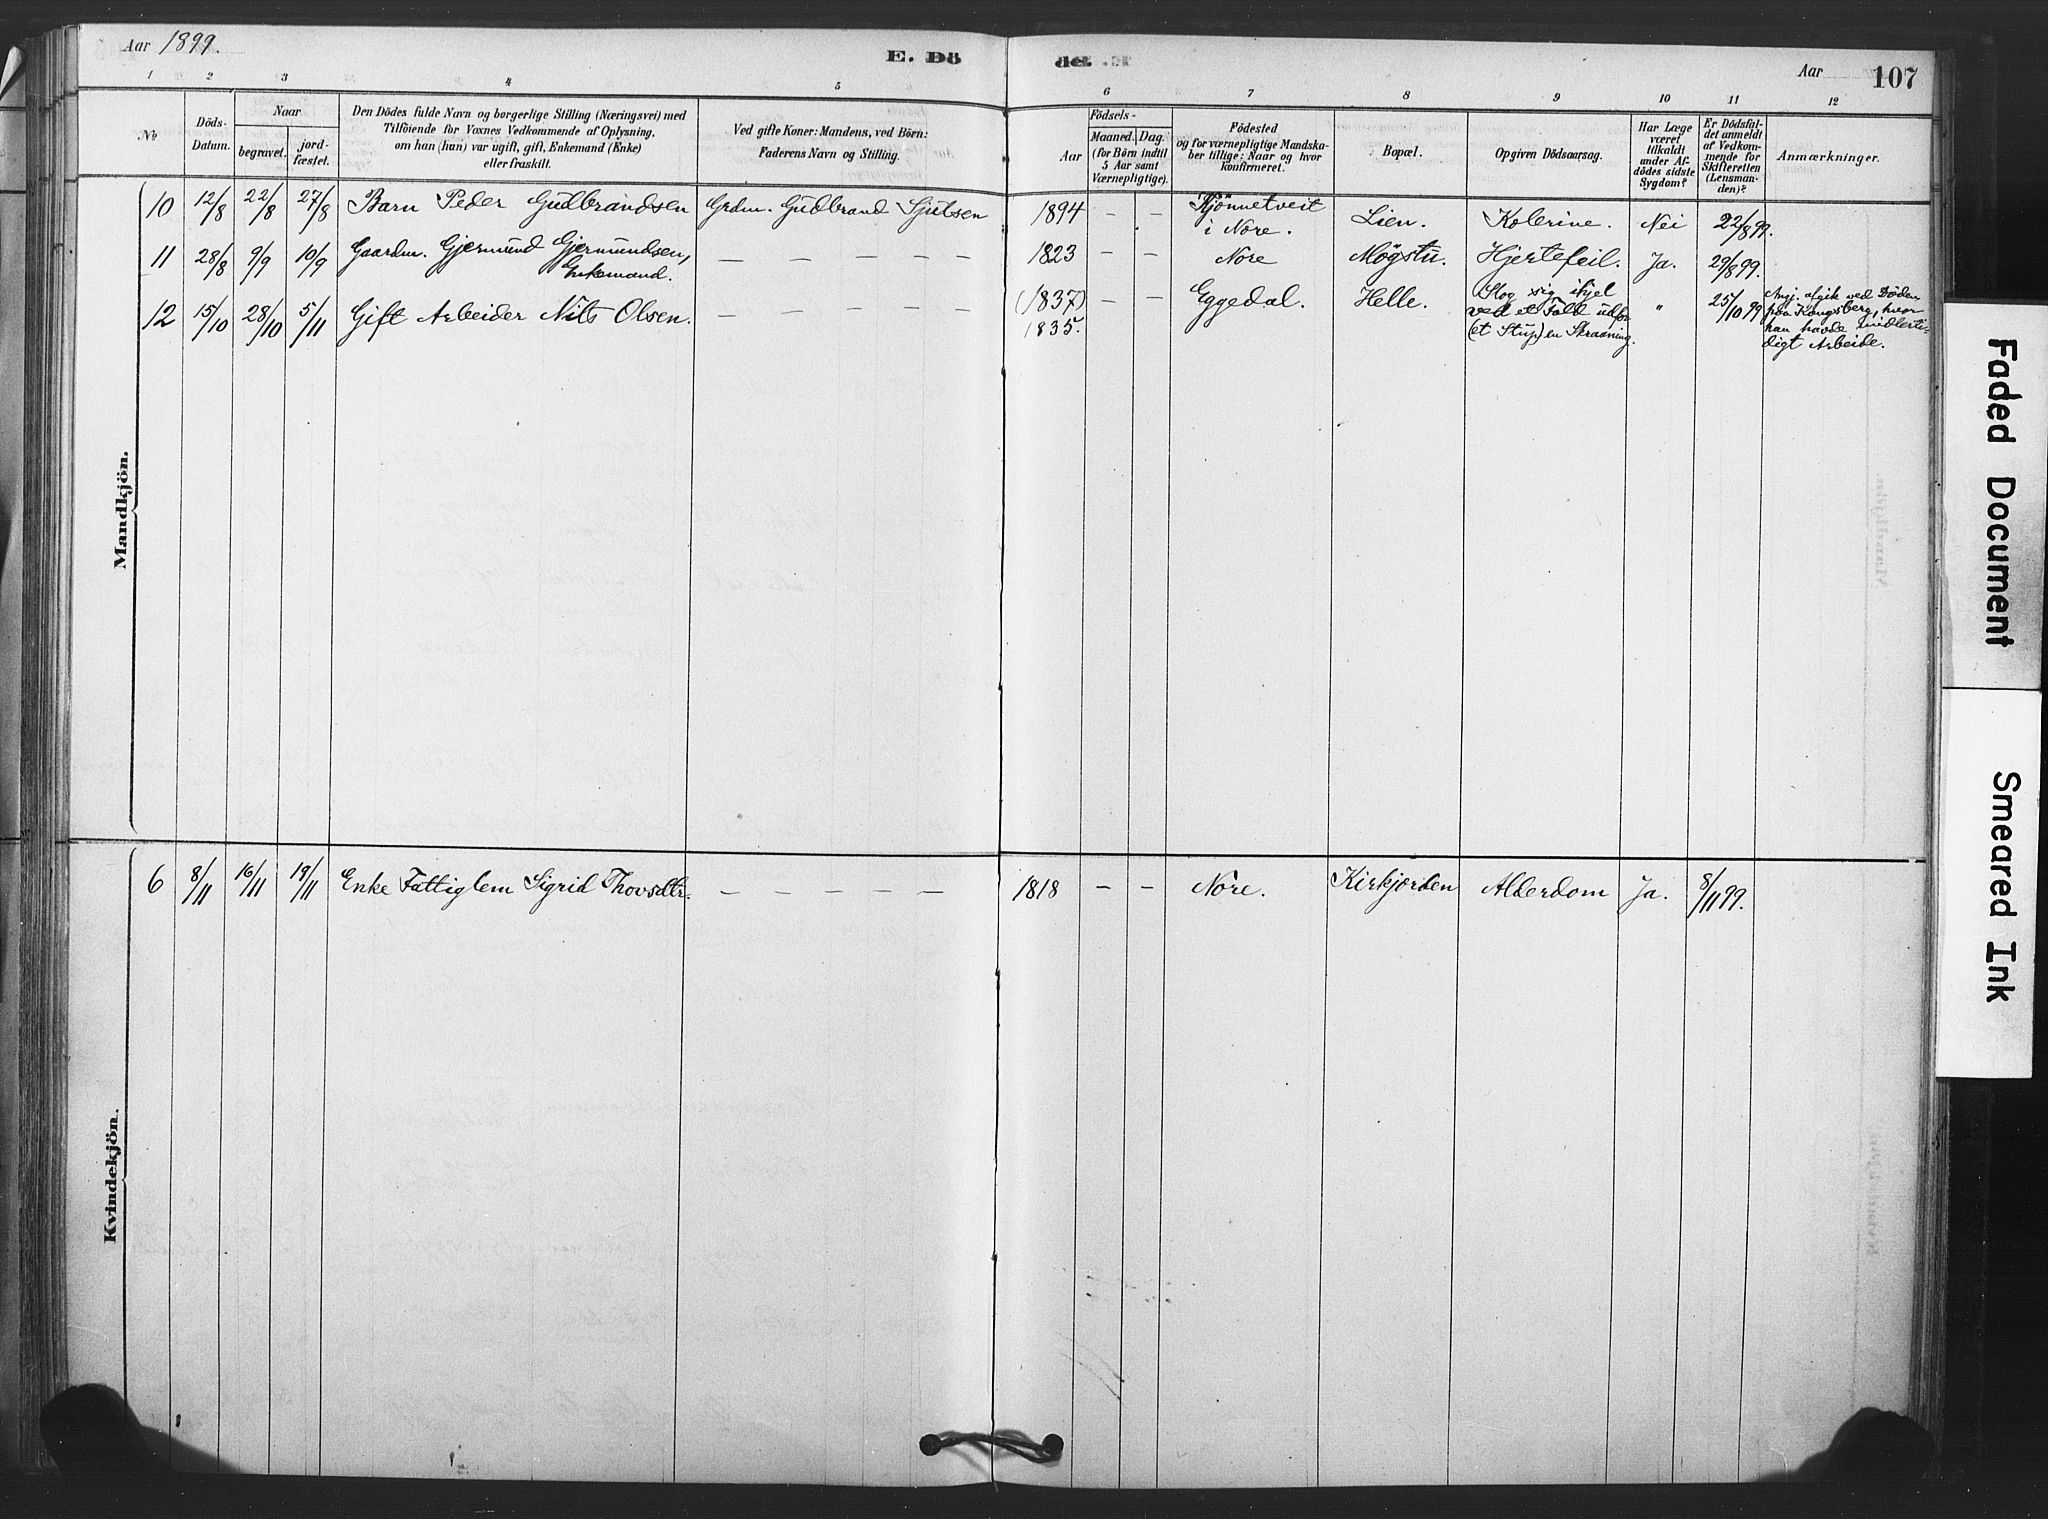 Aar 1899.
E. Dö
det.
Aar
107
1 2 3 4 5 6 7 8 9 10 11 12
No
Döds-
Datum.
Naar
begravet.
jord-
fæstet.
Den Dödes fulde Navn og borgerlige Stilling (Næringsvei) med
Tilföiende for Voxnes Vedkommende af Oplysning,
om han (hun) var ugift, gift, Enkemand (Enke)
eller fraskilt.
Ved gifte Koner: Mandens, ved Börn:
Faderens Navn og Stilling.
Födsels-
Aar
Maaned.
Dag.
(for Börn indtil
5 Aar samt
Værnepligtige).
Födested
og for værnepligtige Mandska-
ber tillige: Naar og hvor
konfirmeret.
Bopæl.
Opgiven Dödsaarsag.
Har Læge
været
tilkaldt
under Af-
dödes sidste
Sygdom?
Er Dödsfal-
det anmeldt
af Vedkom-
mende for
Skifteretten
(Lensman-
den)?
Anmærkninger.
Mandkjön.
10 12/8 22/8 27/8 Barn Peder Gudbrandsen Grdm. Gudbrand Sjulsen 1894 – – Kjönnetveit
i Nore. Lien. Kolerine. Nei 22/8 99.
11 28/8 9/9 10/9 Gaardm. Gjermund Gjermundsen,
Enkemand. – – – – – 1823 – – Nore Mögstu. Hjertefeil. Ja. 29/8 99.
12 15/10 28/10 5/11 Gift Arbeider Nils Olsen. – – – – – (1837)
1835. – – Eggedal. Helle. Slog sig ihjel
ved et Fald udfor
(et Stup) en Skraaning. " 25/10 99 Anj. afgik ved Döden
paa Kongsberg, hvor
han havde midlerti-
digt Arbeide.
Kvindekjön.
6 8/11 16/11 19/11 Enke Fattiglem Sigrid Thovsdtr. – – – – – 1818 – – Nore. Kirkjorden Alderdom Ja. 8/11 99.
Faded Document
Smeared Ink